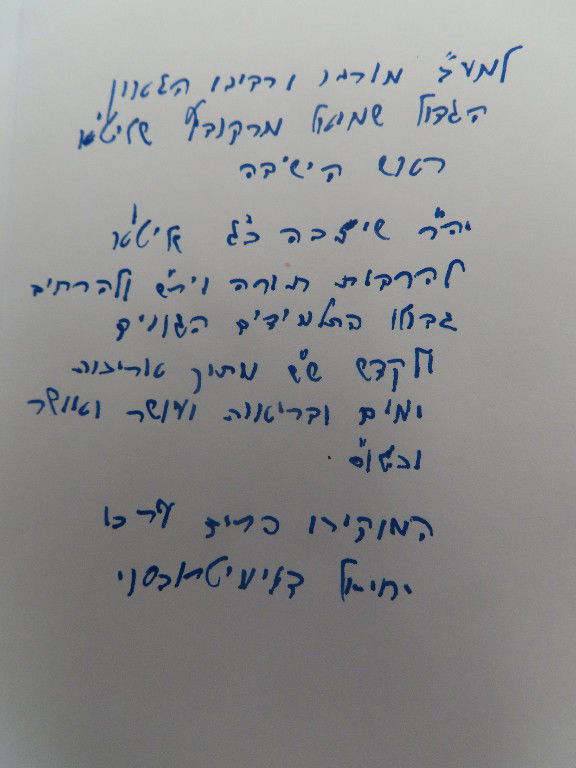 למע"כ מורנו ורבינו הגאון
הגדול שמואל מרקוביץ שליט"א
ראש הישיבה
יה"ר שיזכה כ"ג שליט"א
להרבות תורה ויר"ש ולהרחיב
גבולו התלמידים הגונים
לקדש ש"ש מתוך אריכות
ימים ובריאות ועושר ואושר
וכט"ס
המוקירו כרום ערכו
יחיאל